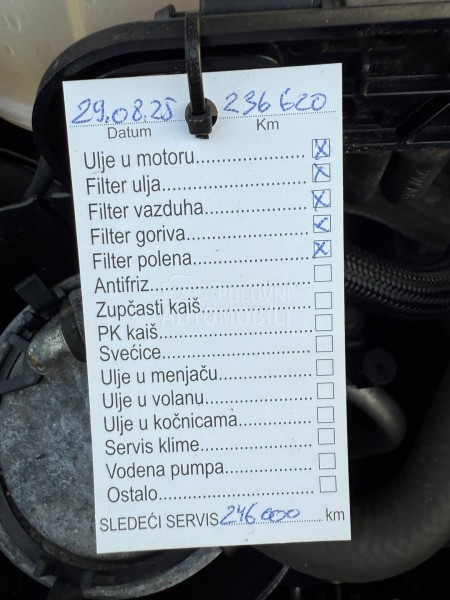 29.08.25 236 620
Datum Km
Ulje u motoru
Filter ulja
Filter vazduha
Filter goriva
Filter polena
Antifriz
Zupčasti kaiš
PK kaiš
Svećice
Ulje u menjaču
Ulje u volanu
Ulje u kočnicama
Servis klime
Vodena pumpa
Ostalo
SLEDEĆI SERVIS 246 000 km
POLOVNI
AUTOMOBILI